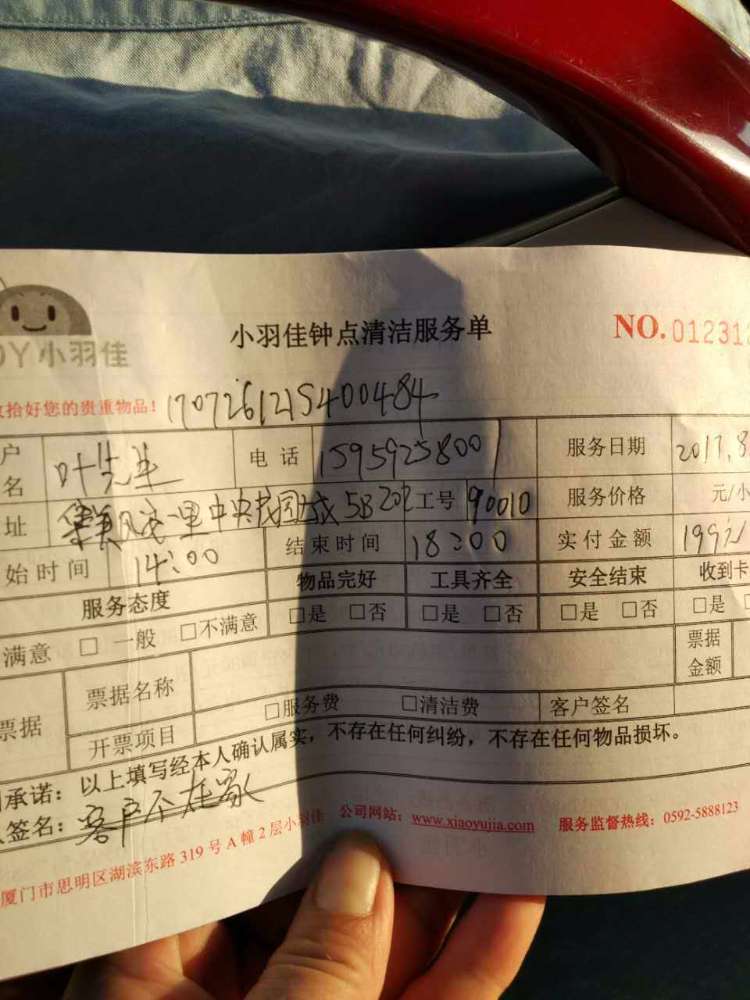 小羽佳
小羽佳钟点清洁服务单
NO.01231
拾好您的贵重物品！ 1707261215400484
户名 叶先生 电话 15959258001 服务日期 2017.8
址 5B202 工号 90010 服务价格 元/小
始时间 14:00 结束时间 18:00 实付金额 199元
服务态度 物品完好 工具齐全 安全结束 收到卡
满意 □ 一般 □不满意 □是 □否 □是 □否 □是 □否 □是
票据 票据名称 票据金额
开票项目 □服务费 □清洁费 客户签名
承诺：以上填写经本人确认属实，不存在任何纠纷，不存在任何物品损坏。
签名：客户不在家
厦门市思明区湖滨东路319号A幢2层小羽佳 公司网站：www.xiaoyujia.com 服务监督热线：0592-5888123